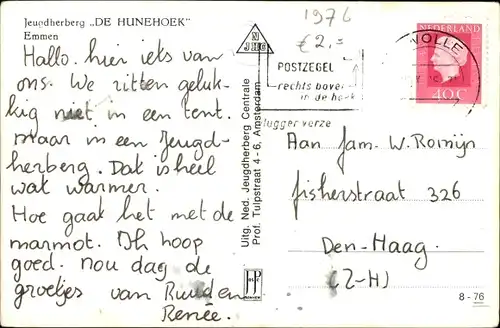 Jeugdherberg „DE HUNEHOEK"
Emmen
Hallo. hier iets van
ons. We zitten geluk-
kig niet in een tent.
maar in een Jeugd-
herberg. Dat is heel
wat warmer.
Hoe gaat het met de
marmot. Ik hoop
goed. nou dag de
groetjes van Ruud en
Renée.
Uitg. Ned. Jeugdherberg Centrale
Prof. Tulpstraat 4-6, Amsterdam
1976
€2,=
N
JHC
POSTZEGEL
rechts boven
in de hoek
vlugger verze
WOLLE
NEDERLAND
40C
Aan fam. W. Romijn
fisherstraat 326
Den-Haag.
(Z-H)
8-76